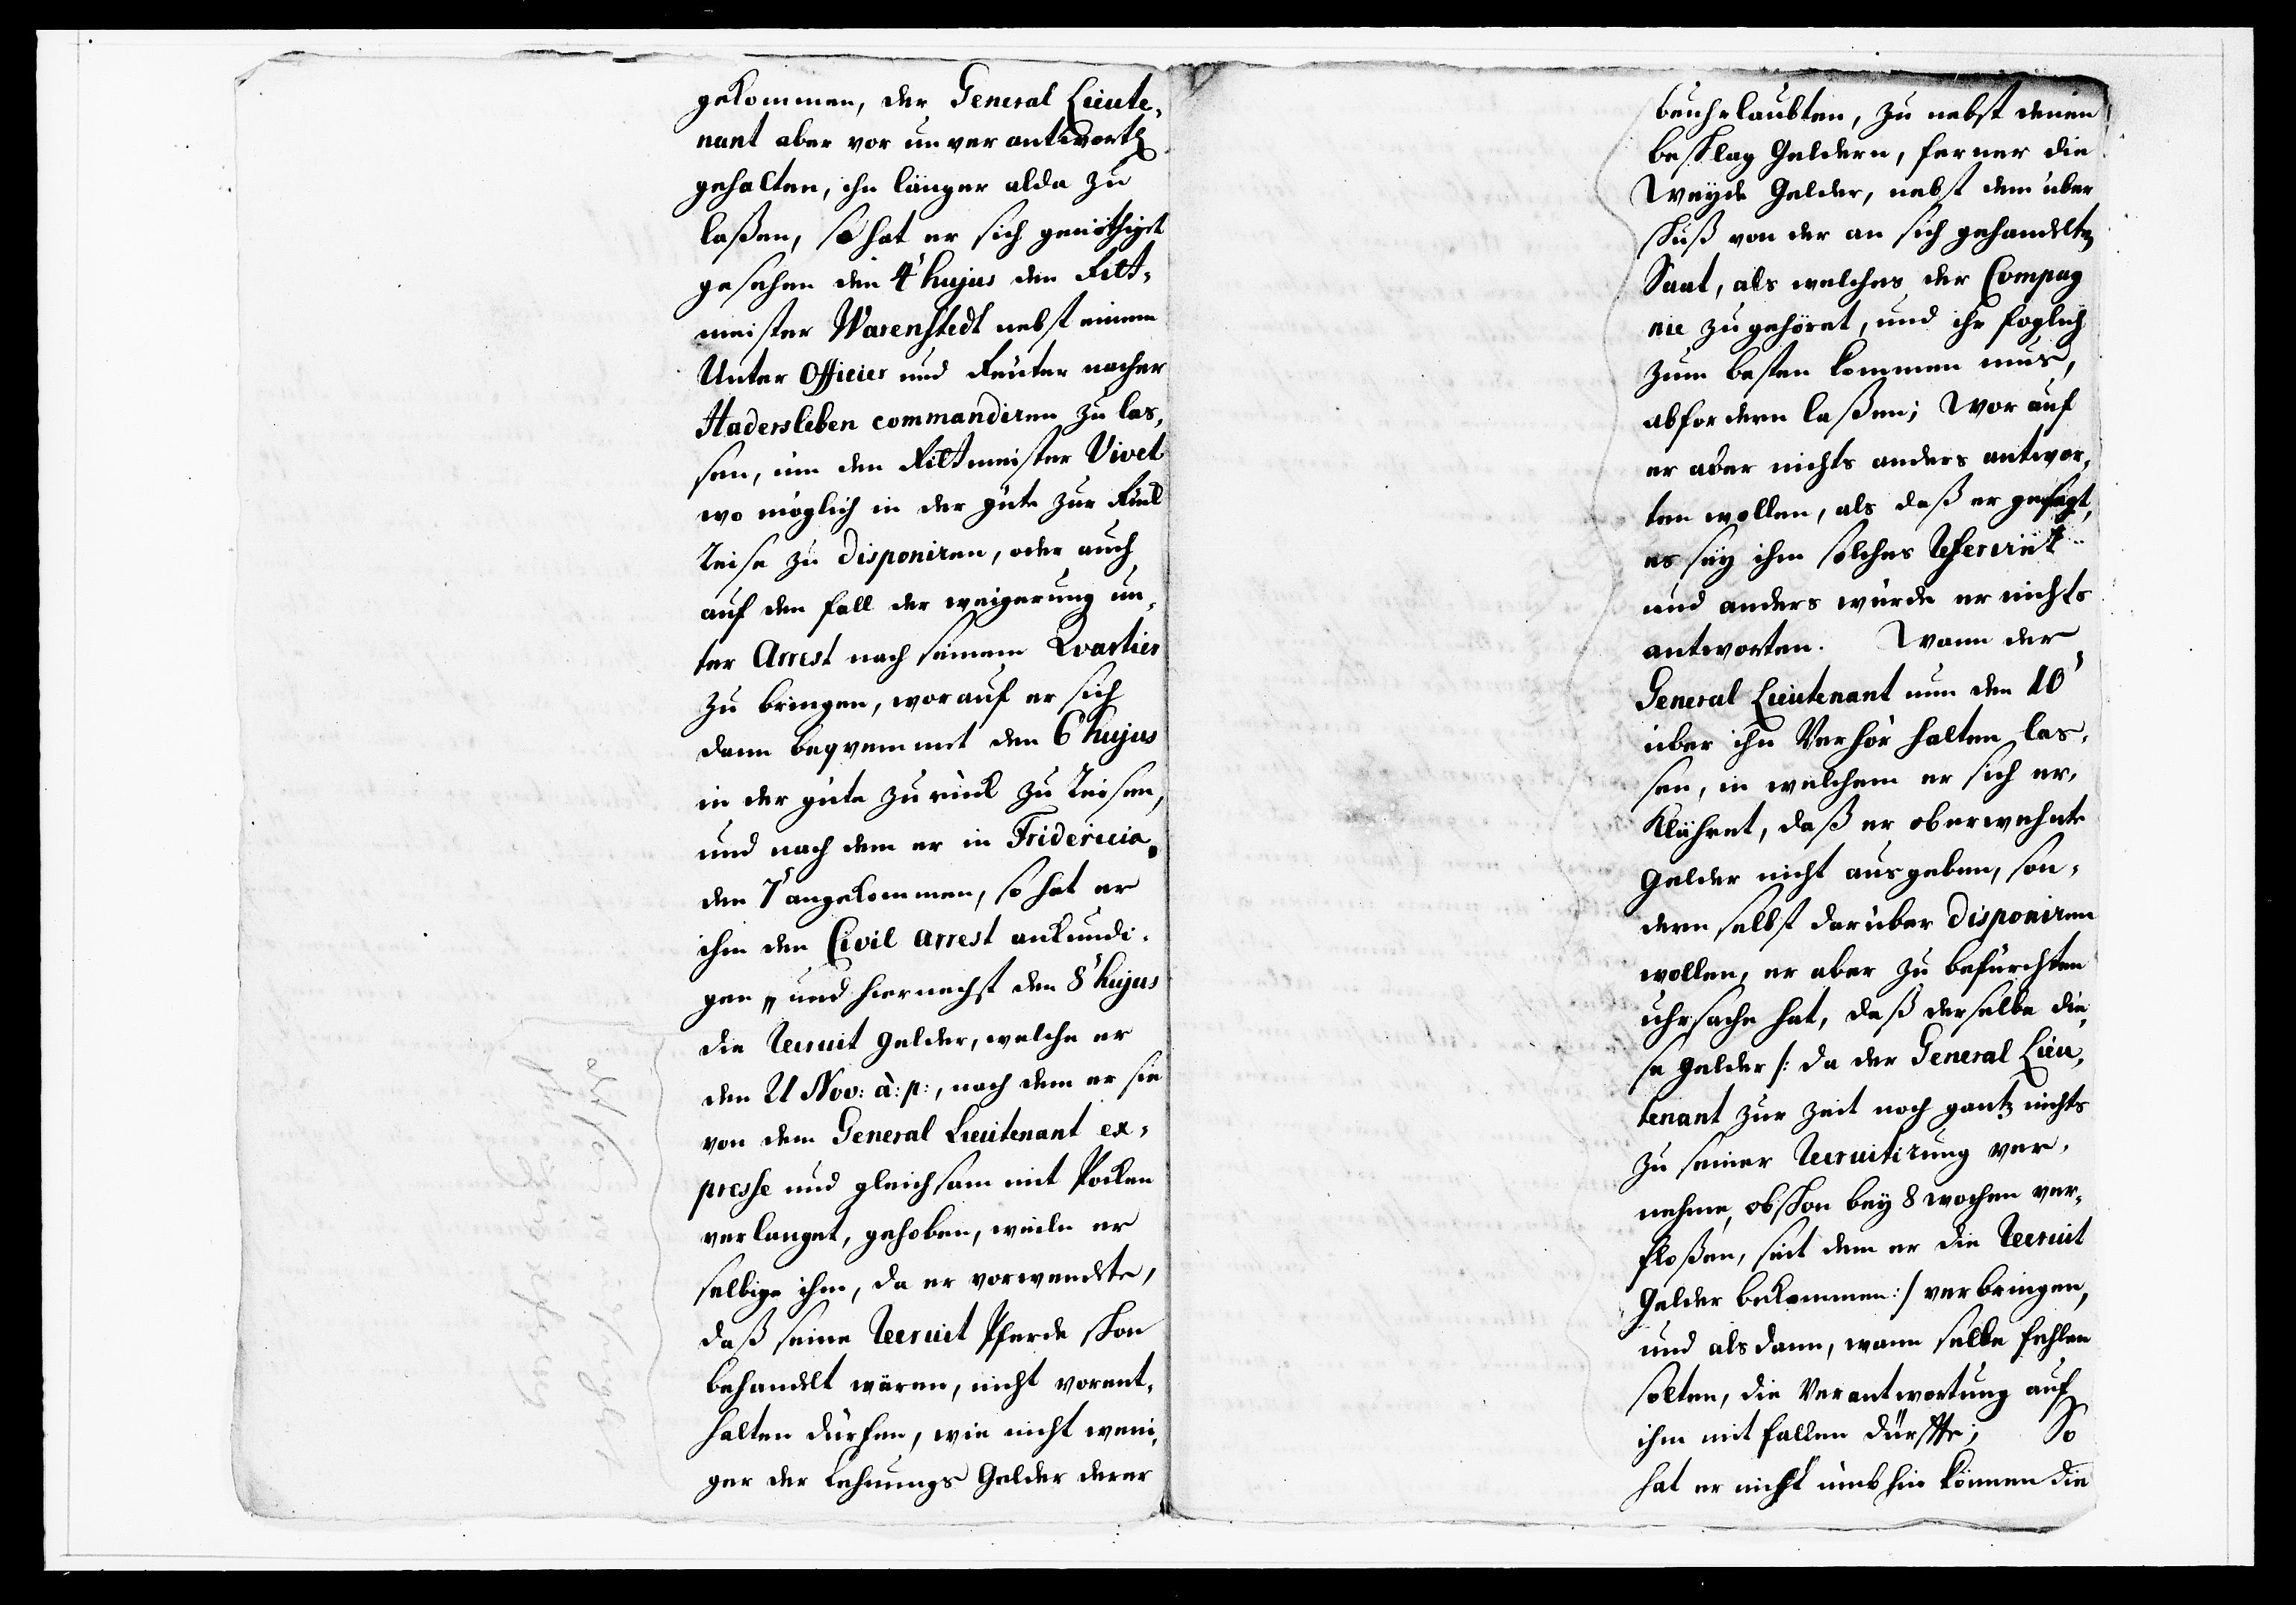 gekommen, der General Lieute,
nant aber vor unverantwortl
gehalten, ihn länger alda zu
laßen, so hat er sich genöthiget
gesehen den 4' hujus den Ritt-
meister Warenstedt nebst einem
Unter Officier und Reuter nacher
Hadersleben commandiren zu las,
sen, um den Rittmeister Vivet
wo möglich in der güte zur Rück
reise zu disponiren, oder auch
auf den fall der weigerung un,
ter Arrest nach seinem Qvartier
zu bringen, worauf er sich
dann beqvemmet den 6' hujus
in der güte zurück zu reisen,
und nach dem er in Fridericia
den 7' angekommen, so hat er
ihm den Civil arrest ankundi-
gen, und hiernechst den 8' hujus
die Recruit gelder, welche er
den 21 Nov: à: p:, nach dem er sie
von dem General Lieutenant ex-
presse und gleichsam mit Pochen
verlanget, gehoben, weiln er
selbige ihm, da er vorwendete,
daß seine Recruit Pferde schon
behandelt wären, nicht vorent,
halten dürfen, wie nicht weni,
ger der Lehnungs Gelder derer
beuhrlaubten, zu nebst denen
beschlag Geldern, ferner die
Weyde Gelder, nebst dem über
schuß von der an sich gehandelten
Saat, als welches der Compag
nie zugehöret, und ihr foglich
zum besten kommen mus,
abfordern laßen; Worauf
er aber nichts anders antwor,
ten wollen, als daß er gesagt,
es sey ihm solches
und anders würde er nichts
antworten. Wann der
General Lieutenant nun den 10'
über ihn Verhör halten las,
sen, in welchem er sich er,
klähret, daß er oberwehnte
Gelder nicht ausgeben, son,
dern selbst darüber disponiren
wollen, er aber zu befürchten
uhrsache hat, daß derselbe die,
se gelder /: da der General Lieu,
tenant zur Zeit noch gantz nichts
zu seiner Recruitirung ver,
nehme, obschon bey 8 wochen ver,
floßen, seit dem er die Recruit
Gelder bekommen :/ verbringen,
und alsdann, wann selbe fehlen
solten, die Verantwortung auf
ihm mit fallen dürffte; So
hat er nicht umbhin können die